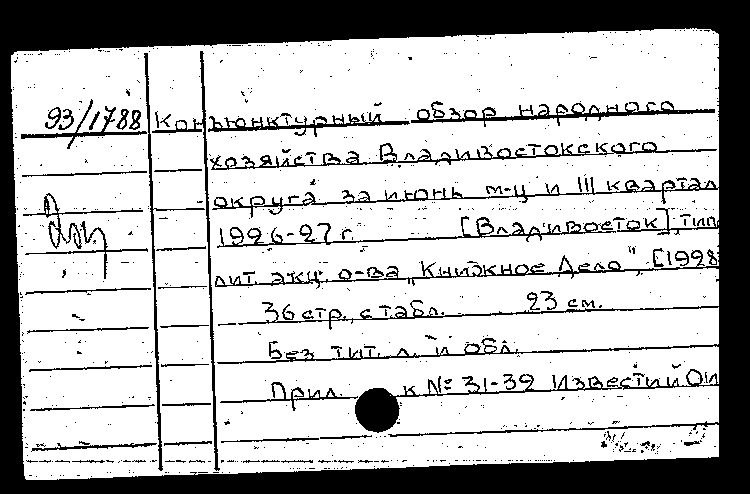 93/1788 Конъюнктурный обзор народного
хозяйства Владивостокского
округа за июнь м-ц и III квартал
1926-27 г. [Владивосток], тип
лит. акц. о-ва „Книжное Дело", [1928
36 стр., с табл. 23 см.
Без тит. л. и обл.
Прил. к № 31-32 Известий